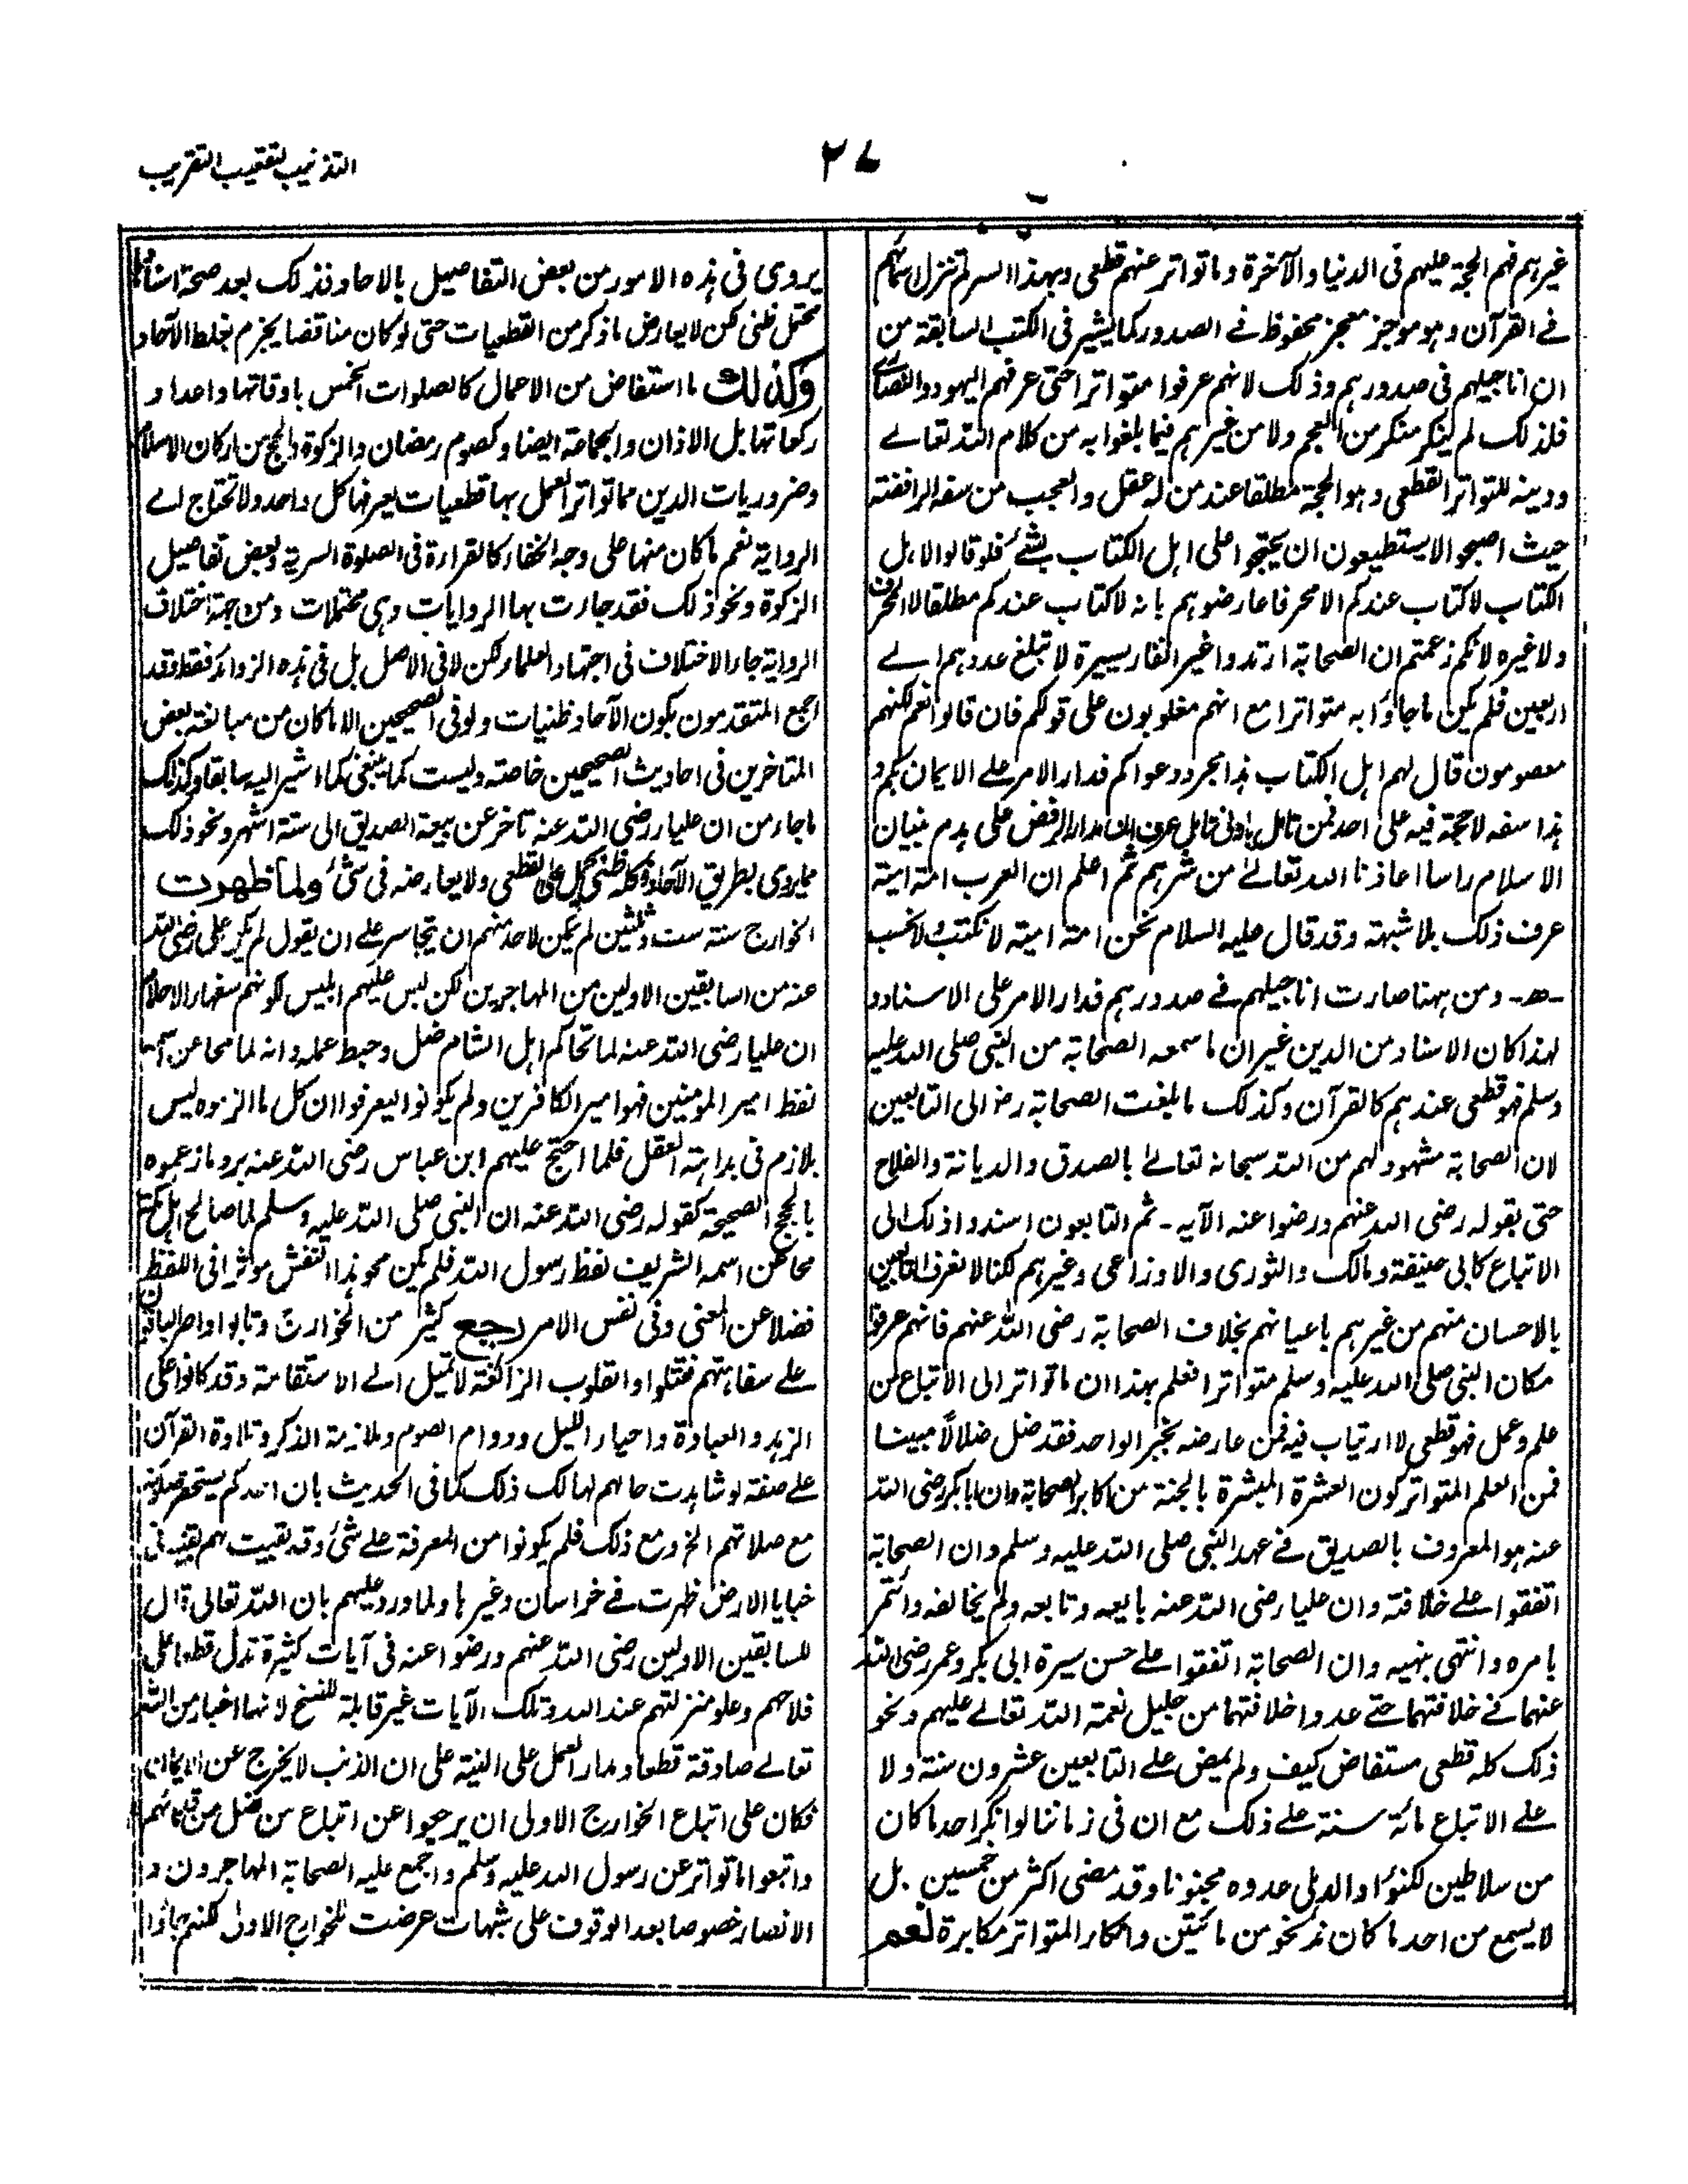 التذنيب لتعقيب التقريب
٢٧
غيرهم فهم الحجة عليهم فى الدنيا والآخرة وما تواتر عنهم قطعى وبهذا السر لم تنزل
فى القرآن وهو موجز معجز محفوظ فى الصدور كما يشير فى الكتب السابقة من
ان اناجيلهم فى صدورهم وذلك لانهم عرفوا متواترا حتى عرفهم اليهود والنصارى
فلذلك لم ينكر منكر من العجم ولا من غيرهم فيما بلغوا به من كلام الله تعالى
ودينه للتواتر القطعى وهو الحجة مطلقا عند من له عقل والعجب من سفه الرافضة
حيث اصبحوا لا يستطيعون ان يحتجوا على اهل الكتاب بشئ فلو قالوا لاهل
الكتاب لا كتاب عندكم الا محرفا عارضوهم بانه لا كتاب عندكم مطلقا لا المحرف
ولا غيره لانكم زعمتم ان الصحابة ارتدوا غير انفار يسيرة لا تبلغ عددهم الى
اربعين فلم يكن ما جاؤا به متواترا مع انهم مغلوبون على قولكم فان قالوا نعم لكنهم
معصومون قال لهم اهل الكتاب هذا مجرد دعواكم فدار الامر على الايمان بكم و
هذا سفه لا حجة فيه على احد فمن تامل بادنى تامل عرف ان مدار الرفض على هدم بنيان
الاسلام راسا اعاذنا الله تعالى من شرهم ثم اعلم ان العرب امة امية
عرف ذلك بلا شبهة وقد قال عليه السلام نحن امة امية لا نكتب ولا نحسب
-ه- ومن ههنا صارت اناجيلهم فى صدورهم فدار الامر على الاسناد و
لهذا كان الاسناد من الدين غير ان ما سمعه الصحابة من النبى صلى الله عليه
وسلم فهو قطعى عندهم كالقرآن وكذلك ما بلغت الصحابة رض الى التابعين
لان الصحابة مشهود لهم من الله سبحانه تعالى بالصدق والديانة والفلاح
حتى بقوله رضى الله عنهم ورضوا عنه الآيه - ثم التابعون اسندوا ذلك الى
الاتباع كابى حنيفة ومالك والثورى والاوزاعى وغيرهم لكنا لا نعرف التابعين
بالاحسان منهم من غيرهم باعيانهم بخلاف الصحابة رضى الله عنهم فانهم عرفوا
مكان النبى صلى الله عليه وسلم متواترا فعلم بهذا ان ما تواتر الى الاتباع من
علم وعمل فهو قطعى لا ارتياب فيه فمن عارضه بخبر الواحد فقد ضل ضلالًا مبينا
فمن العلم المتواتر كون العشرة المبشرة بالجنة من اكابر الصحابة وان ابا بكر رضى الله
عنه هو المعروف بالصديق فى عهد النبى صلى الله عليه وسلم وان الصحابة
اتفقوا على خلافته وان عليا رضى الله عنه بايعه وتابعه ولم يخالفه وائتمر
بامره وانتهى بنهيه وان الصحابة اتفقوا على حسن سيرة ابى بكر وعمر رضى الله
عنهما فى خلافتهما حتى عدوا خلافتهما من جليل نعمة الله تعالى عليهم ونحو
ذلك كله قطعى مستفاض كيف ولم يمض على التابعين عشرون سنة ولا
على الاتباع مائة سنة على ذلك مع ان فى زماننا لو انكر احد ما كان
من سلاطين لكنؤ او الدهلى عدوه مجنونا وقد مضى اكثر من خمسين بل
لا يسمع من احد ما كان مذ نحو من مائتين وانكار المتواتر مكابرة نعم
يروى فى هذه الامور من بعض التفاصيل بالاحاد فذلك بعد صحة اسناده
محتمل ظنى لكن لا يعارض ما ذكر من القطعيات حتى لو كان مناقضا يجزم بغلط الآحاد
وكذلك ما استفاض من الاعمال كالصلوات الخمس باوقاتها واعداد
ركعاتها بل الاذان والجماعة ايضا وكصوم رمضان والزكوة والحج من اركان الاسلام
وضروريات الدين مما تواتر العمل بها قطعيات يعرفها كل واحد ولا تحتاج الى
الرواية نعم ما كان منها على وجه الخفاء كالقراءة فى الصلوة السرية وبعض تفاصيل
الزكوة ونحو ذلك فقد جاءت بها الروايات وهى محتملات ومن جهة اختلاف
الرواية جاء الاختلاف فى اجتهاد العلماء لكن لا فى الاصل بل فى هذه الزوائد فقط وقد
اجمع المتقدمون بكون الآحاد ظنيات ولو فى الصحيحين الا ما كان من مبالغة بعض
المتاخرين فى احاديث الصحيحين خاصة وليست كما ينبغى كما اشير اليه سابقا وكذلك
ما جاء من ان عليا رضى الله عنه تاخر عن بيعة الصديق الى ستة اشهر ونحو ذلك
مما يروى بطريق الآحاد فكله ظنى يحمل على القطعى ولا يعارضه فى شئ ولما ظهرت
الخوارج سنة ست وثلثين لم يكن لاحد منهم ان يتجاسر على ان يقول لم يكن على رضى الله
عنه من السابقين الاولين من المهاجرين لكن لبس عليهم ابليس لكونهم سفهاء الاحلام
ان عليا رضى الله عنه لما تحاكم اهل الشام ضل وحبط عمله وانه لما محا عن اسمه
لفظ امير المؤمنين فهو امير الكافرين ولم يكونوا ليعرفوا ان كل ما الزموه ليس
بلازم فى بداهة العقل فلما احتج عليهم ابن عباس رضى الله عنه برد ما زعموه
بالحجج الصحيحة كقوله رضى الله عنه ان النبى صلى الله عليه وسلم لما صالح اهل مكة
محا عن اسمه الشريف لفظ رسول الله فلم يكن محو هذا النقش موثرا فى اللفظ
فضلا عن المعنى وفى نفس الامر رجع كثير من الخوارج وتابوا واصر الباقون
على سفاهتهم فقتلوا والقلوب الزائغة لا تميل الى الاستقامة وقد كانوا على
الزهد والعبادة واحياء الليل ودوام الصوم وملازمة الذكر وتلاوة القرآن
على صفة لو شاهدت حالهم لهالك ذلك كما فى الحديث بان احدكم يستحقر صلوته
مع صلاتهم الخ ومع ذلك فلم يكونوا من المعرفة على شئ وقد بقيت بقيتهم فى
خبايا الارض ظهرت فى خراسان وغيرها ولما ورد عليهم بان الله تعالى قال
للسابقين الاولين رضى الله عنهم ورضوا عنه فى آيات كثيرة تدل قطعا على
فلاحهم وعلو منزلتهم عند الله وتلك الآيات غير قابلة للنسخ لانها اخبار من الله
تعالى صادقة قطعا ومدار العمل على النية على ان الذنب لا يخرج عن الايمان
فكان على اتباع الخوارج الاولى ان يرجعوا عن اتباع من ضل من
واتبعوا ما تواتر عن رسول الله عليه وسلم واجمع عليه الصحابة المهاجرون و
الانصار خصوصا بعد الوقوف على شبهات عرضت للخوارج الاولى لكنهم جاؤا